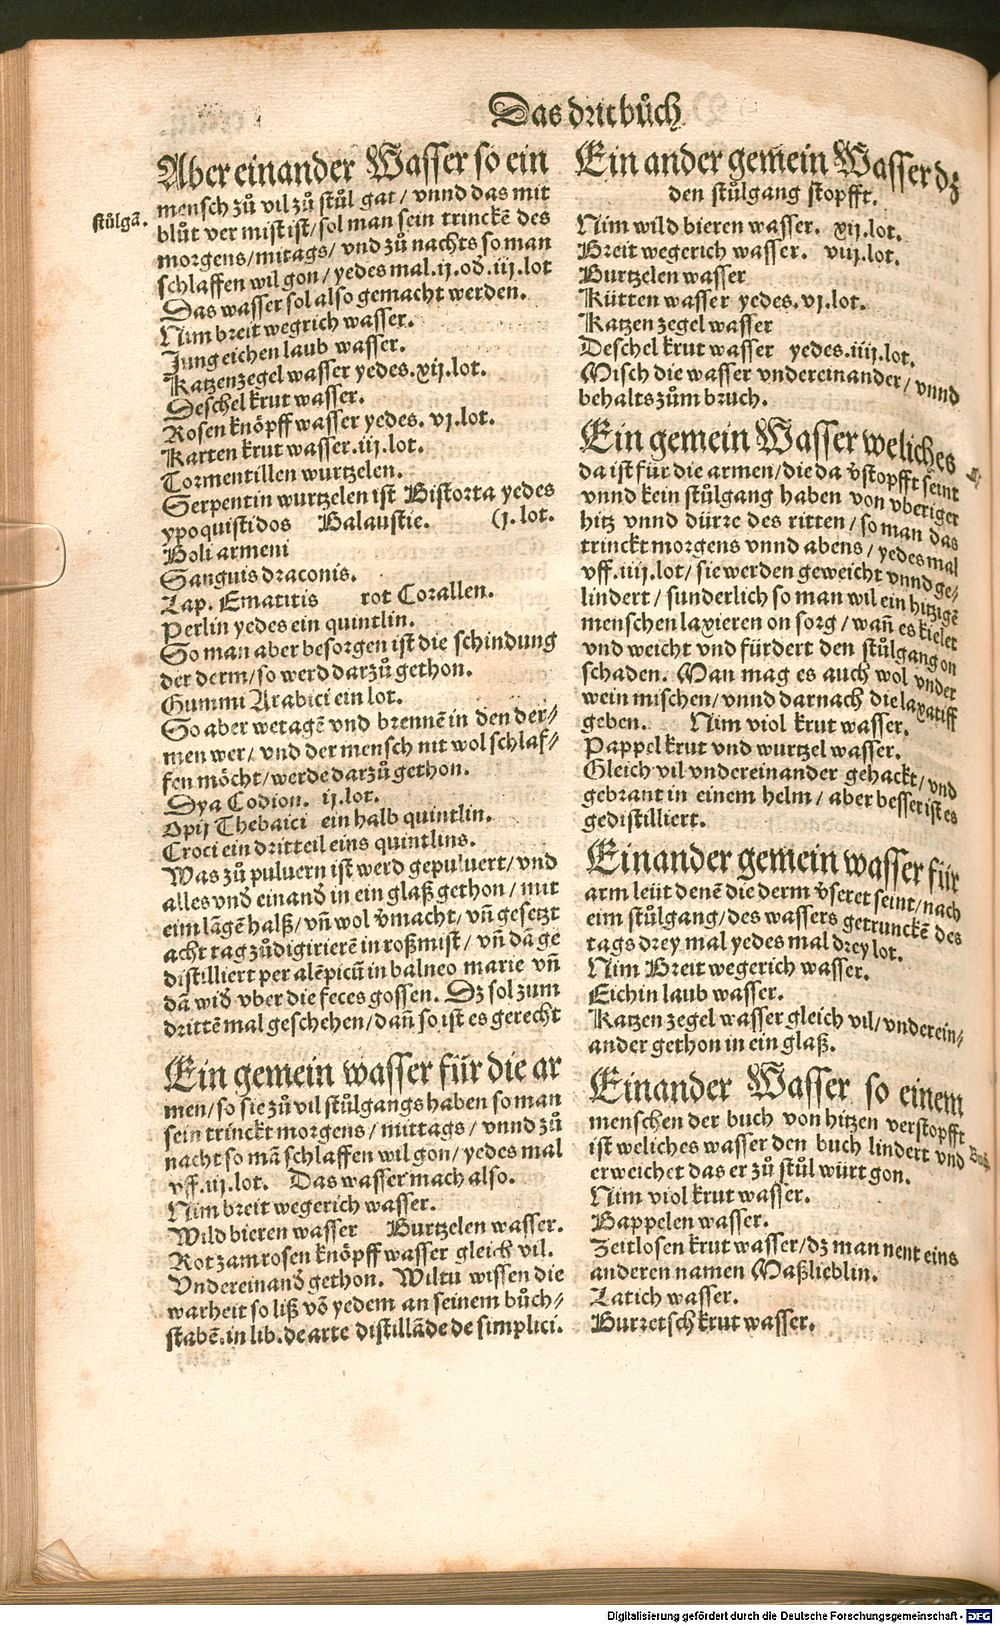 Das drit bůch
Aber ein ander Wasser so ein
mensch zů vil zů stůl gat / vnnd das mit
stůlgā.
blůt vermist ist / sol man sein trinckē des
morgens / mitags / vnd zů nachts so man
schlaffen wil gon / yedes mal .ij. od̄ .iij. lot
Das wasser sol also gemacht werden.
Nim breit wegrich wasser.
Jung eichen laub wasser.
Katzenzegel wasser yedes .xij. lot.
Deschel krut wasser.
Rosen knöpff wasser yedes. vj. lot.
Karten krut wasser .iij. lot.
Tormentillen wurtzelen.
Serpentin wurtzelen ist Bistorta yedes
ypoquistidos Balaustie. (j. lot.
Boli armeni
Sanguis draconis.
Lap. Ematitis rot Corallen.
Perlin yedes ein quintlin.
So man aber besorgen ist die schindung
der derm / so werd darzů gethon.
Gummi Arabici ein lot.
So aber wetagē vnd brennē in den der⸗
men wer / vnd der mensch nit wol schlaf⸗
fen möcht / werde darzů gethon.
Dya Codion. ij. lot.
Opij Thebaici ein halb quintlin.
Croci ein dritteil eins quintlins.
Was zů puluern ist werd gepuluert / vnd
alles vnd einand̄ in ein glaß gethon / mit
eim lāgē halß / vn̄ wol v̄macht / vn̄ gesetzt
acht tag zů digirierē in roßmist / vn̄ dā ge
distilliert per alēpicū in balneo marie vn̄
dā wid̄ vber die feces gossen. Dz sol zum
drittē mal geschehen / dan̄ so ist es gerecht
Ein gemein wasser für die ar
men / so sie zů vil stůlgangs haben so man
sein trinckt morgens / mittags / vnnd zů
nacht so mā schlaffen wil gon / yedes mal
vff .iij. lot. Das wasser mach also.
Nim breit wegerich wasser.
Wild bieren wasser Burtzelen wasser.
Rot zam rosen knöpff wasser gleich vil.
Vndereinand̄ gethon. Wiltu wissen die
warheit so liß vō yedem an seinem bůch⸗
stabē. in lib. de arte distillāde de simplici.
Ein ander gemein Wasser dz
den stůlgang stopfft.
Nim wild bieren wasser. xij. lot.
Breit wegerich wasser. viij. lot.
Burtzelen wasser
Kütten wasser yedes. vj. lot.
Katzen zegel wasser
Deschel krut wasser yedes. iiij. lot.
Misch die wasser vndereinander / vnnd
behalts zům bruch.
Ein gemein Wasser weliches
da ist für die armen / die da v̄stopfft seint
vnnd kein stůlgang haben von vberiger
hitz vnnd dürre des ritten / so man das
trinckt morgens vnnd abens / yedes mal
vff .iiij. lot / sie werden geweicht vnnd ge⸗
lindert / sunderlich so man wil ein hitzigē
menschen laxieren on sorg / wan̄ es kielet
vnd weicht vnd fürdert den stůlgang on
schaden. Man mag es auch wol vnder
wein mischen / vnnd darnach die laxatiff
geben. Nim viol krut wasser.
Pappel krut vnd wurtzel wasser.
Gleich vil vndereinander gehackt / vnd
gebrant in einem helm / aber besser ist es
gedistilliert.
Ein ander gemein wasser für
arm leüt denē die derm v̄seret seint / nach
eim stůlgang / des wassers getrunckē des
tags drey mal yedes mal drey lot.
Nim Breit wegerich wasser.
Eichin laub wasser.
Katzen zegel wasser gleich vil / vnderein⸗
ander gethon in ein glaß.
Ein ander Wasser so einem
menschen der buch von hitzen verstopfft
ist weliches wasser den buch lindert vnd
erweichet das er zů stůl würt gon.
Nim viol krut wasser.
Bappelen wasser.
Zeitlosen krut wasser / dz man nent eins
anderen namen Maßlieblin.
Latich wasser.
Burretsch krut wasser.
Digitalisierung gefördert durch die Deutsche Forschungsgemeinschaft - DFG